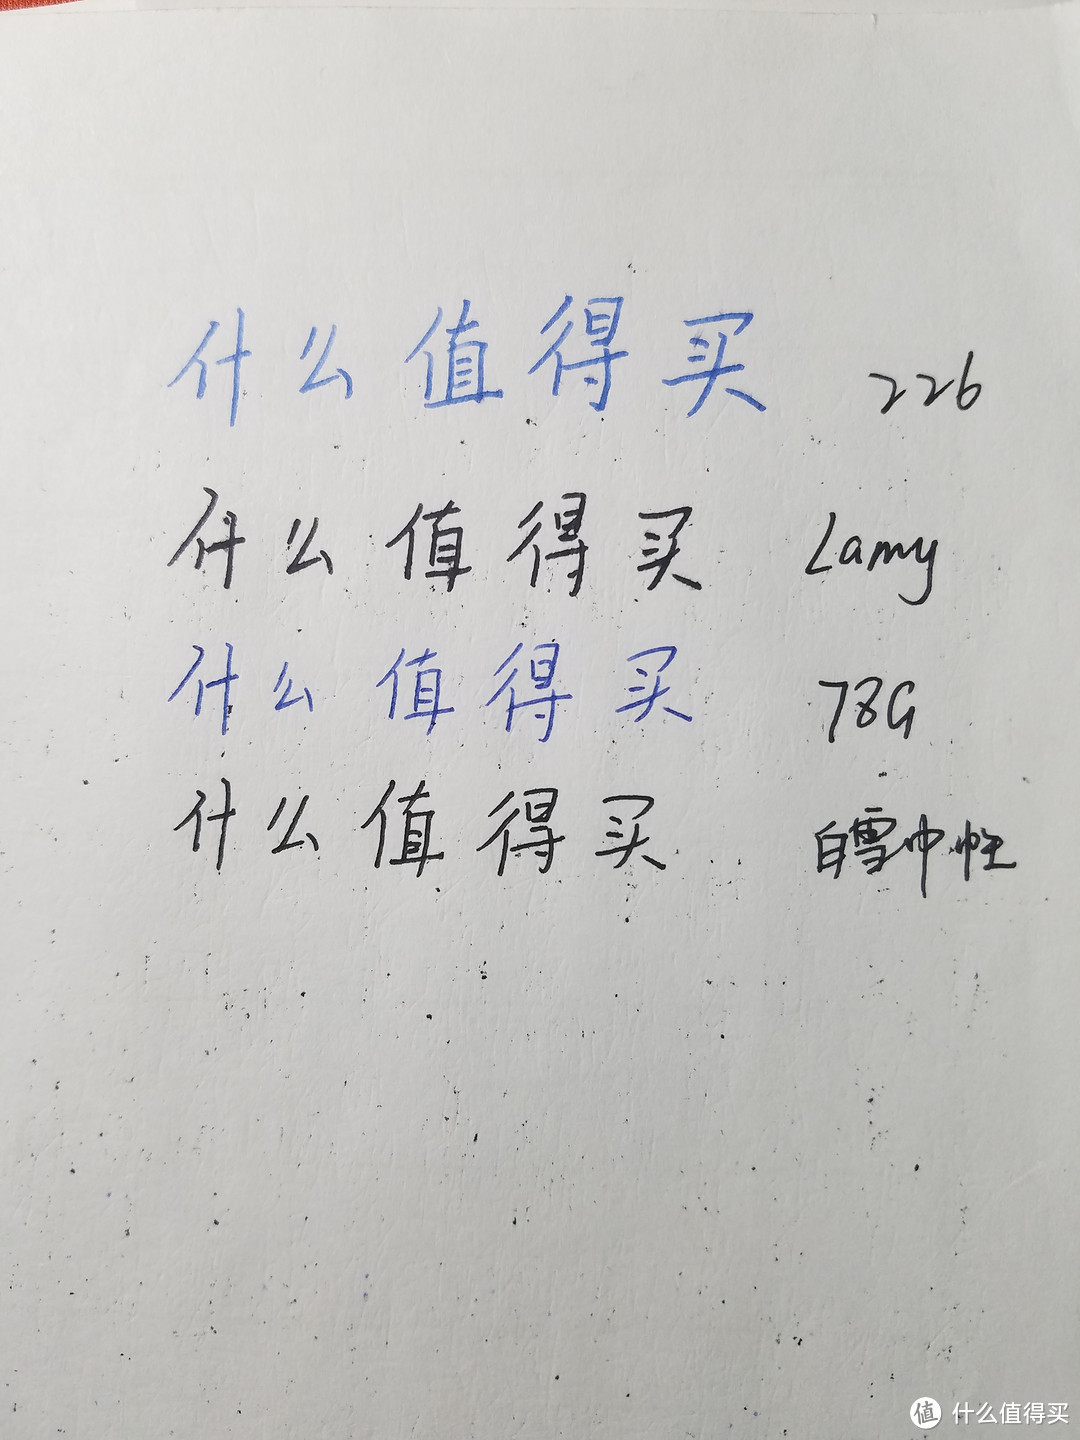 什么值得买 226
什么值得买 Lamy
什么值得买 78G
什么值得买 白雪中性
值 什么值得买